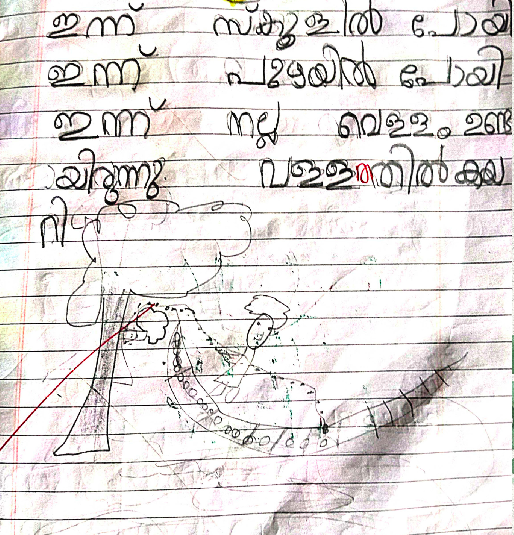 ഇന്ന് സ്കൂളിൽ പോയി
ഇന്ന് പുഴയിൽ പോയി
ഇന്ന് നല്ല വെള്ളം ഉണ്ട
ായിരുന്നു വള്ളത്തിൽ കയ
റി